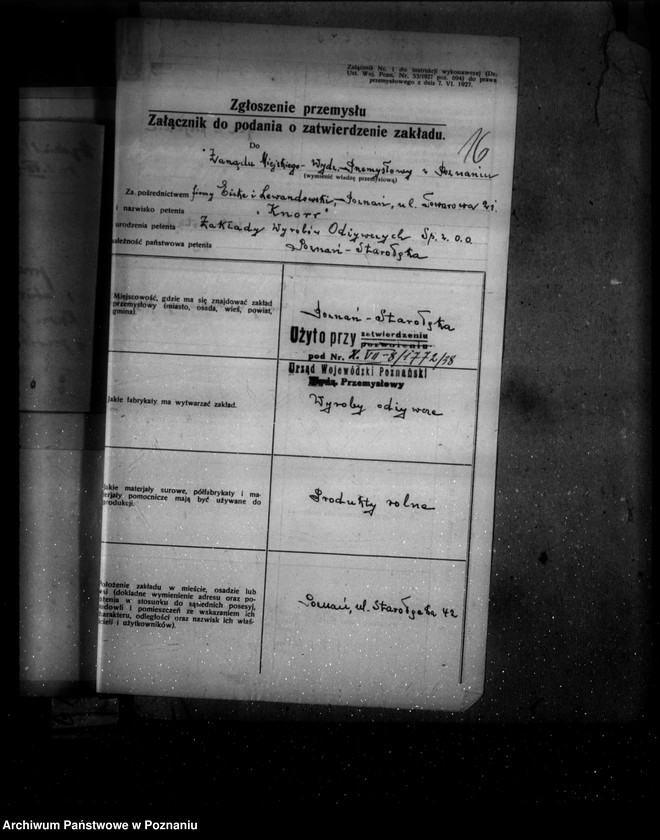 Załącznik Nr. 1 do instrukcji wykonawczej (Dz.
Ust. Woj. Pozn. Nr. 53/1927 poz. 694) do prawa
przemysłowego z dnia 7. VI. 1927.
16
Zgłoszenie przemysłu
Załącznik do podania o zatwierdzenie zakładu.
Do
Zarządu Miejskiego - Wydz. Przemysłowy w Poznaniu
(wymienić władzę przemysłową)
Za pośrednictwem firmy i Lewandowski, Poznań, ul. Towarowa 21.
i nazwisko petenta "Knorr"
urodzenia petenta Zakłady Wyrobów Odżywczych Sp. z. o. o.
ależność państwowa petenta Poznań-Starołęka
Miejscowość, gdzie ma się znajdować zakład
przemysłowy (miasto, osada, wieś, powiat,
gmina).
Poznań-Starołęka
Użyto przy zatwierdzeniu
pozwoleniu
pod Nr. X. VII-8/1772/38
Urząd Wojewódzki Poznański
Wydz. Przemysłowy
Jakie fabrykaty ma wytwarzać zakład.
Wyroby odżywcze
Jakie materjały surowe, półfabrykaty i ma-
terjały pomocnicze mają być używane do
produkcji.
Produkty rolne
Położenie zakładu w mieście, osadzie lub
wsi (dokładne wymienienie adresu oraz po-
łożenia w stosunku do sąsiednich posesyj,
budowli i pomieszczeń ze wskazaniem ich
charakteru, odległości oraz nazwisk ich właś-
cicieli i użytkowników).
Poznań, ul. Starołęcka 42
Archiwum Państwowe w Poznaniu